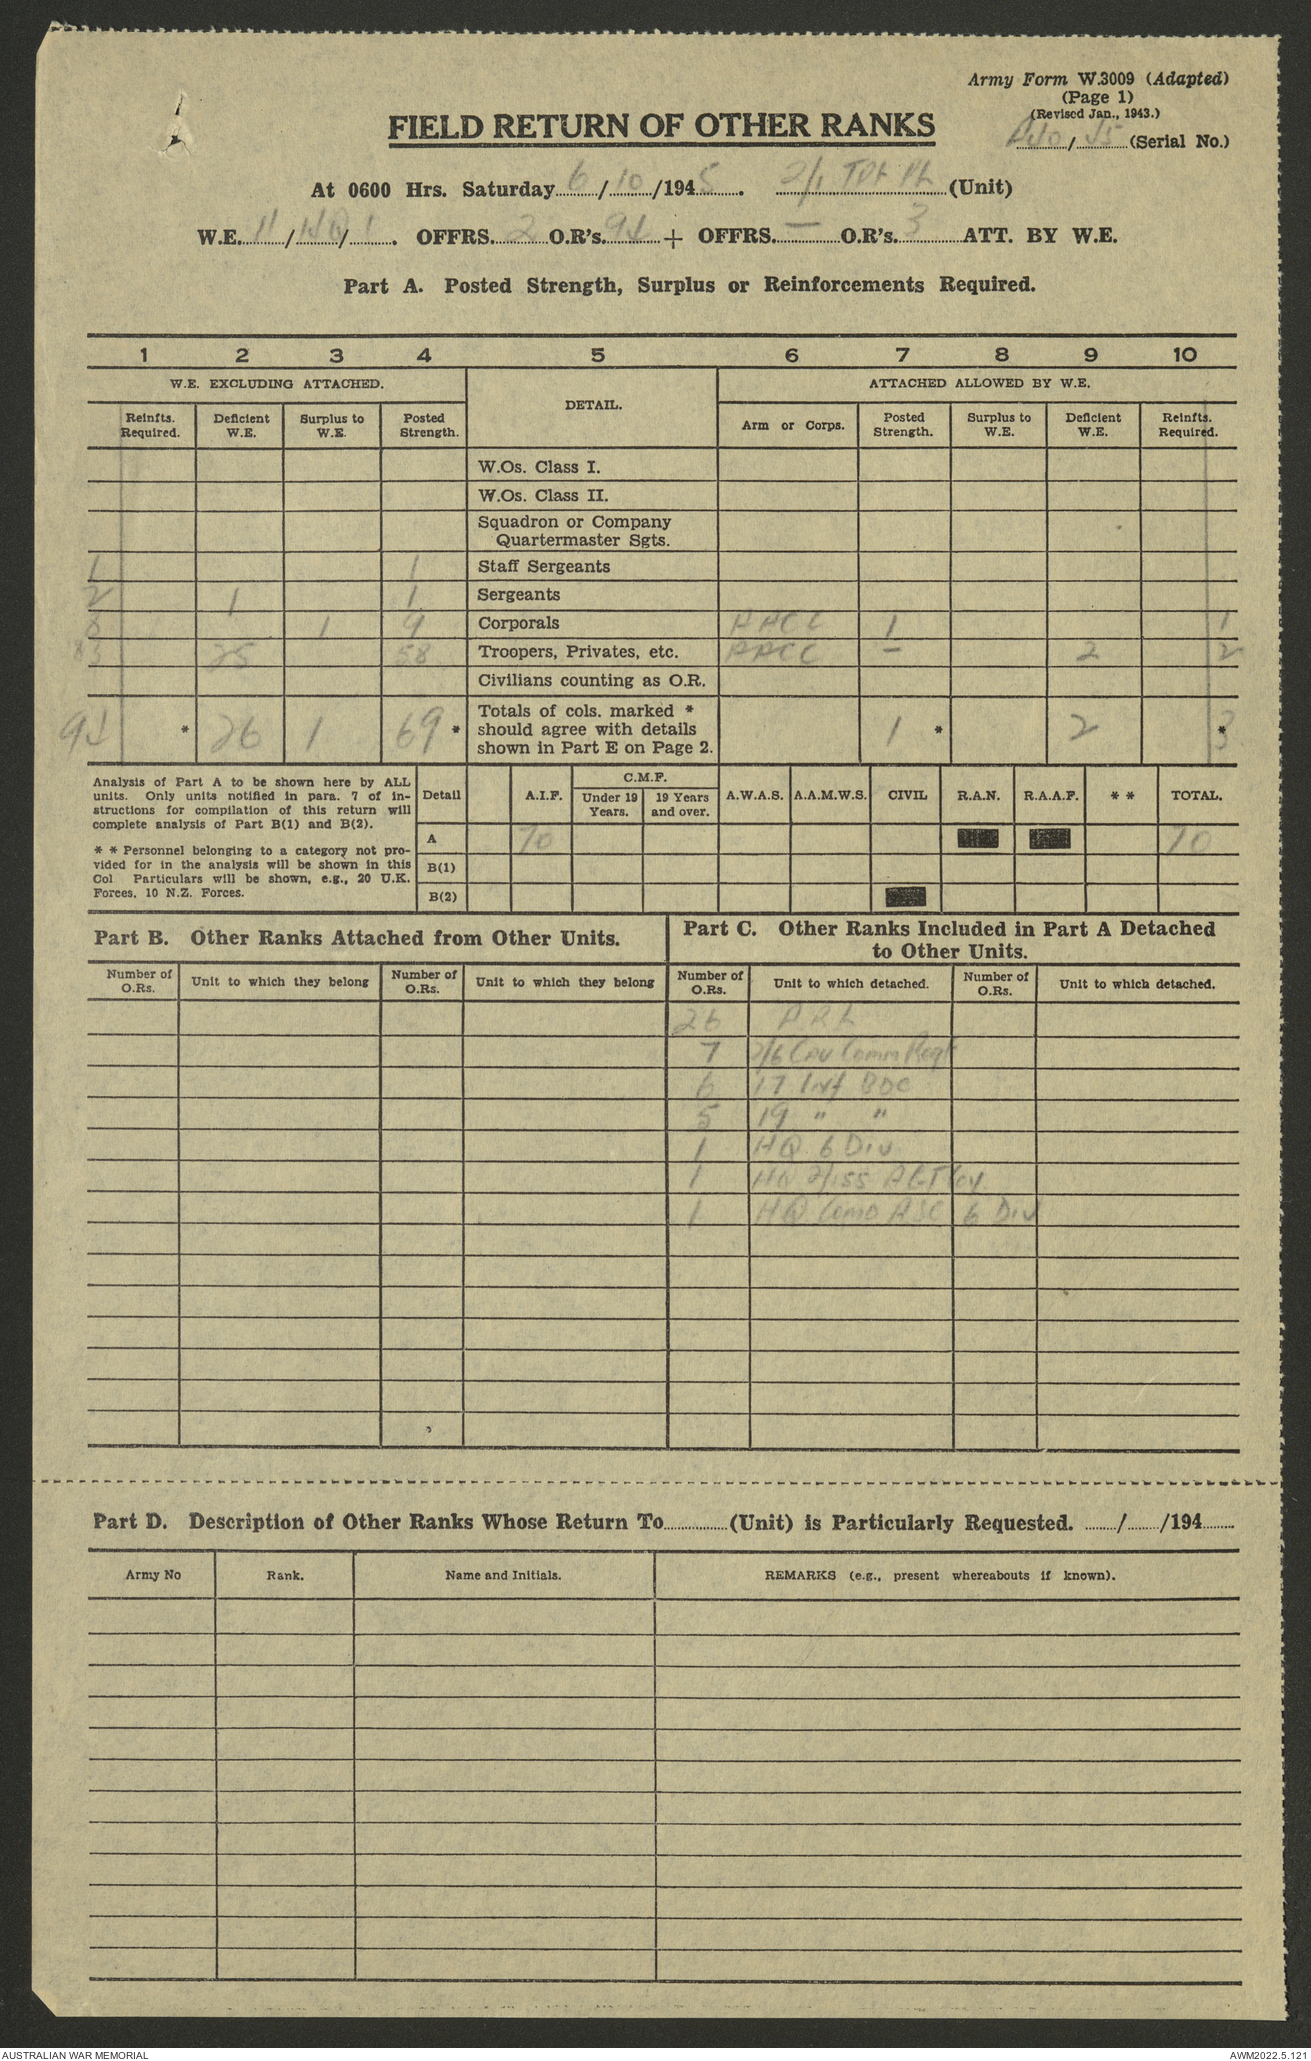 Army Form W.3009 (Adapted)
(Page 1)
(Revised Jan., 1943.)
FIELD RETURN OF OTHER RANKS
/ (Serial No.)
At 0600 Hrs. Saturday 6/10/1945. 2/1 Tpt Pl (Unit)
W.E. 11/HQ/1. OFFRS. 2 O.R's. 94 + OFFRS. — O.R's. 3 ATT. BY W.E.
Part A. Posted Strength, Surplus or Reinforcements Required.
1 2 3 4 5 6 7 8 9 10
W.E. EXCLUDING ATTACHED. DETAIL. ATTACHED ALLOWED BY W.E.
Reinfts. Required. Deficient W.E. Surplus to W.E. Posted Strength. Arm or Corps. Posted Strength. Surplus to W.E. Deficient W.E. Reinfts. Required.
W.Os. Class I.
W.Os. Class II.
Squadron or Company
Quartermaster Sgts.
1 1 Staff Sergeants
2 1 1 Sergeants
8 1 9 Corporals AACC 1 1
83 25 58 Troopers, Privates, etc. AACC - 2 2
Civilians counting as O.R.
Totals of cols. marked *
94 * 26 1 69 * should agree with details 1 * 2 * 3
shown in Part E on Page 2.
Analysis of Part A to be shown here by ALL
units. Only units notified in para. 7 of in-
structions for compilation of this return will
complete analysis of Part B(1) and B(2).
* * Personnel belonging to a category not pro-
vided for in the analysis will be shown in this
Col Particulars will be shown, e.g., 20 U.K.
Forces, 10 N.Z. Forces.
C.M.F.
Detail A.I.F. Under 19 Years. 19 Years and over. A.W.A.S. A.A.M.W.S. CIVIL R.A.N. R.A.A.F. * * TOTAL.
A 70 70
B(1)
B(2)
Part B. Other Ranks Attached from Other Units.
Part C. Other Ranks Included in Part A Detached
to Other Units.
Number of O.Rs. Unit to which they belong Number of O.Rs. Unit to which they belong Number of O.Rs. Unit to which detached. Number of O.Rs. Unit to which detached.
26
7 2/6 Cav Comm Regt
6 17 Inf BDE
5 19 " "
1 HQ 6 Div
1 HQ 2/155 AGT Coy.
1 HQ Comd ASC 6 Div
Part D. Description of Other Ranks Whose Return To (Unit) is Particularly Requested. / /194
Army No Rank. Name and Initials. REMARKS (e.g., present whereabouts if known).
AUSTRALIAN WAR MEMORIAL AWM2022.5.121